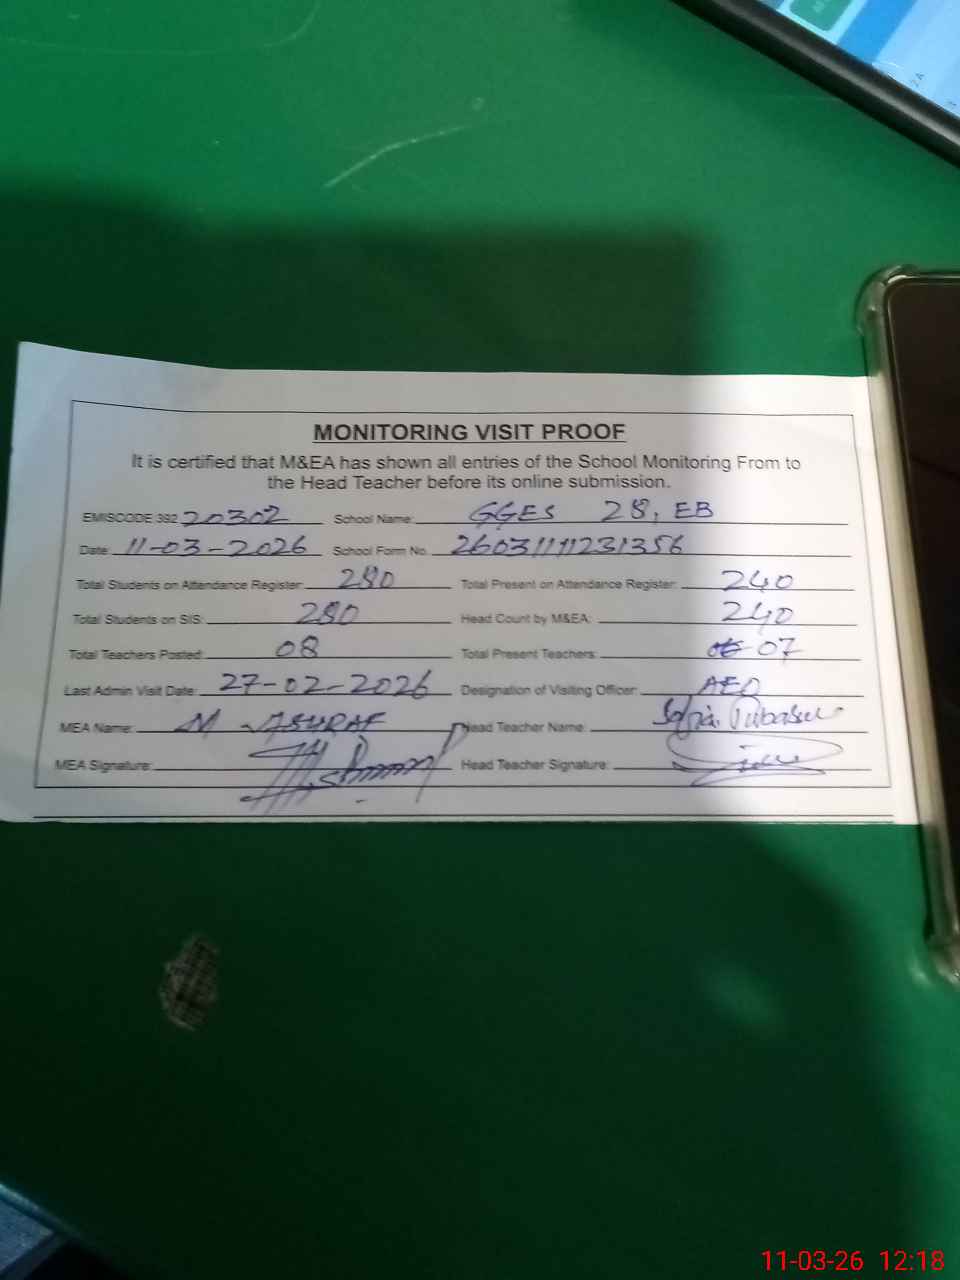 MONITORING VISIT PROOF
It is certified that M&EA has shown all entries of the School Monitoring From to
the Head Teacher before its online submission.
EMISCODE 392 20302 School Name: GGES 28, EB
Date: 11-03-2026 School Form No. 26031111231356
Total Students on Attendance Register: 280 Total Present on Attendance Register: 240
Total Students on SIS: 280 Head Count by M&EA: 240
Total Teachers Posted: 08 Total Present Teachers: 07
Last Admin Visit Date: 27-02-2026 Designation of Visiting Officer: AEO
MEA Name: M Head Teacher Name:
MEA Signature: Head Teacher Signature:
11-03-26 12:18